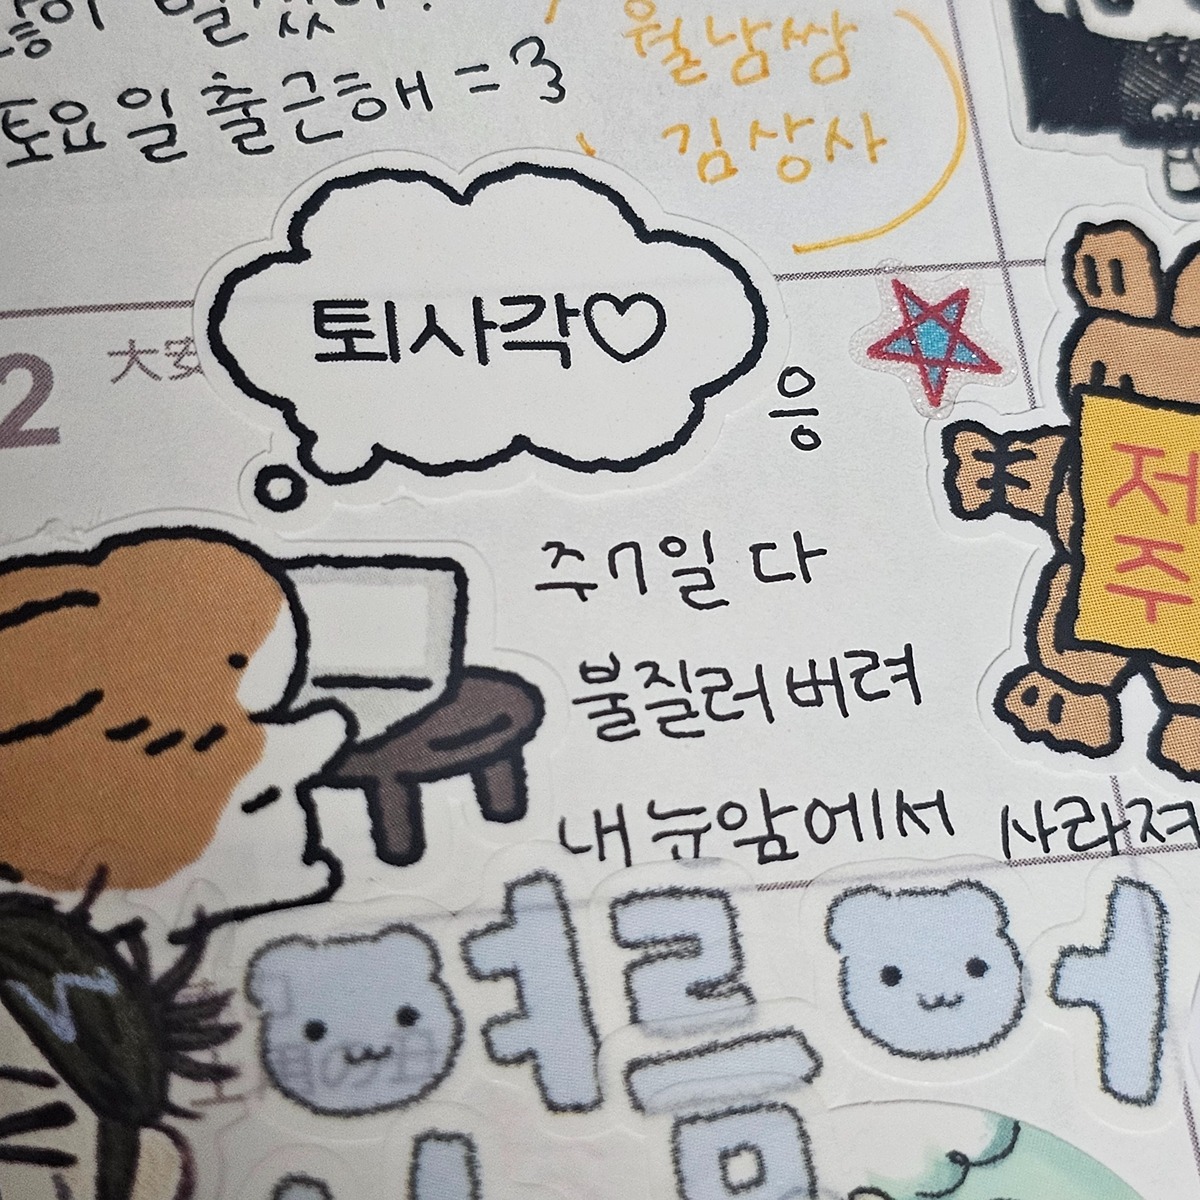 토요일 출근해 =3
월남쌈
김상사
2 大安
퇴사각♡
응
주7일 다
불질러버려
내 눈앞에서 사라져
저
주
여름